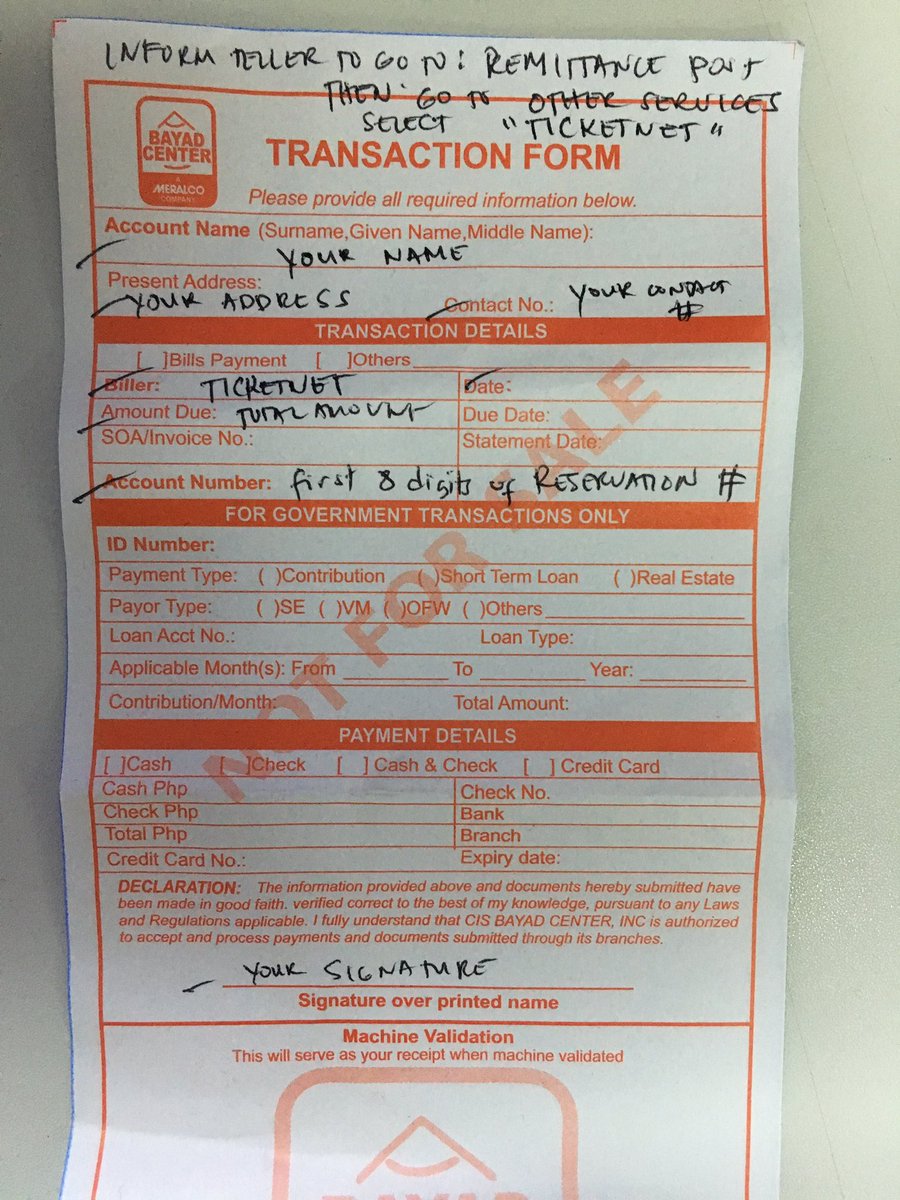 INFORM TELLER TO GO TO: REMITTANCE POST
THEN GO TO OTHER SERVICES
SELECT "TICKETNET"
BAYAD
CENTER
A
MERALCO
COMPANY
TRANSACTION FORM
Please provide all required information below.
Account Name (Surname,Given Name,Middle Name):
YOUR NAME
Present Address:
YOUR ADDRESS Contact No.: YOUR CONTACT
#
TRANSACTION DETAILS
[ ]Bills Payment [ ]Others
Biller: TICKETNET Date:
Amount Due: TOTAL AMOUNT Due Date:
SOA/Invoice No.: Statement Date:
Account Number: first 8 digits of RESERVATION #
FOR GOVERNMENT TRANSACTIONS ONLY
ID Number:
Payment Type: ( )Contribution ( )Short Term Loan ( )Real Estate
Payor Type: ( )SE ( )VM ( )OFW ( )Others
Loan Acct No.: Loan Type:
Applicable Month(s): From To Year:
Contribution/Month: Total Amount:
NOT FOR SALE
PAYMENT DETAILS
[ ]Cash [ ]Check [ ] Cash & Check [ ] Credit Card
Cash Php Check No.
Check Php Bank
Total Php Branch
Credit Card No.: Expiry date:
DECLARATION: The information provided above and documents hereby submitted have
been made in good faith. verified correct to the best of my knowledge, pursuant to any Laws
and Regulations applicable. I fully understand that CIS BAYAD CENTER, INC is authorized
to accept and process payments and documents submitted through its branches.
YOUR SIGNATURE
Signature over printed name
Machine Validation
This will serve as your receipt when machine validated
BAYAD